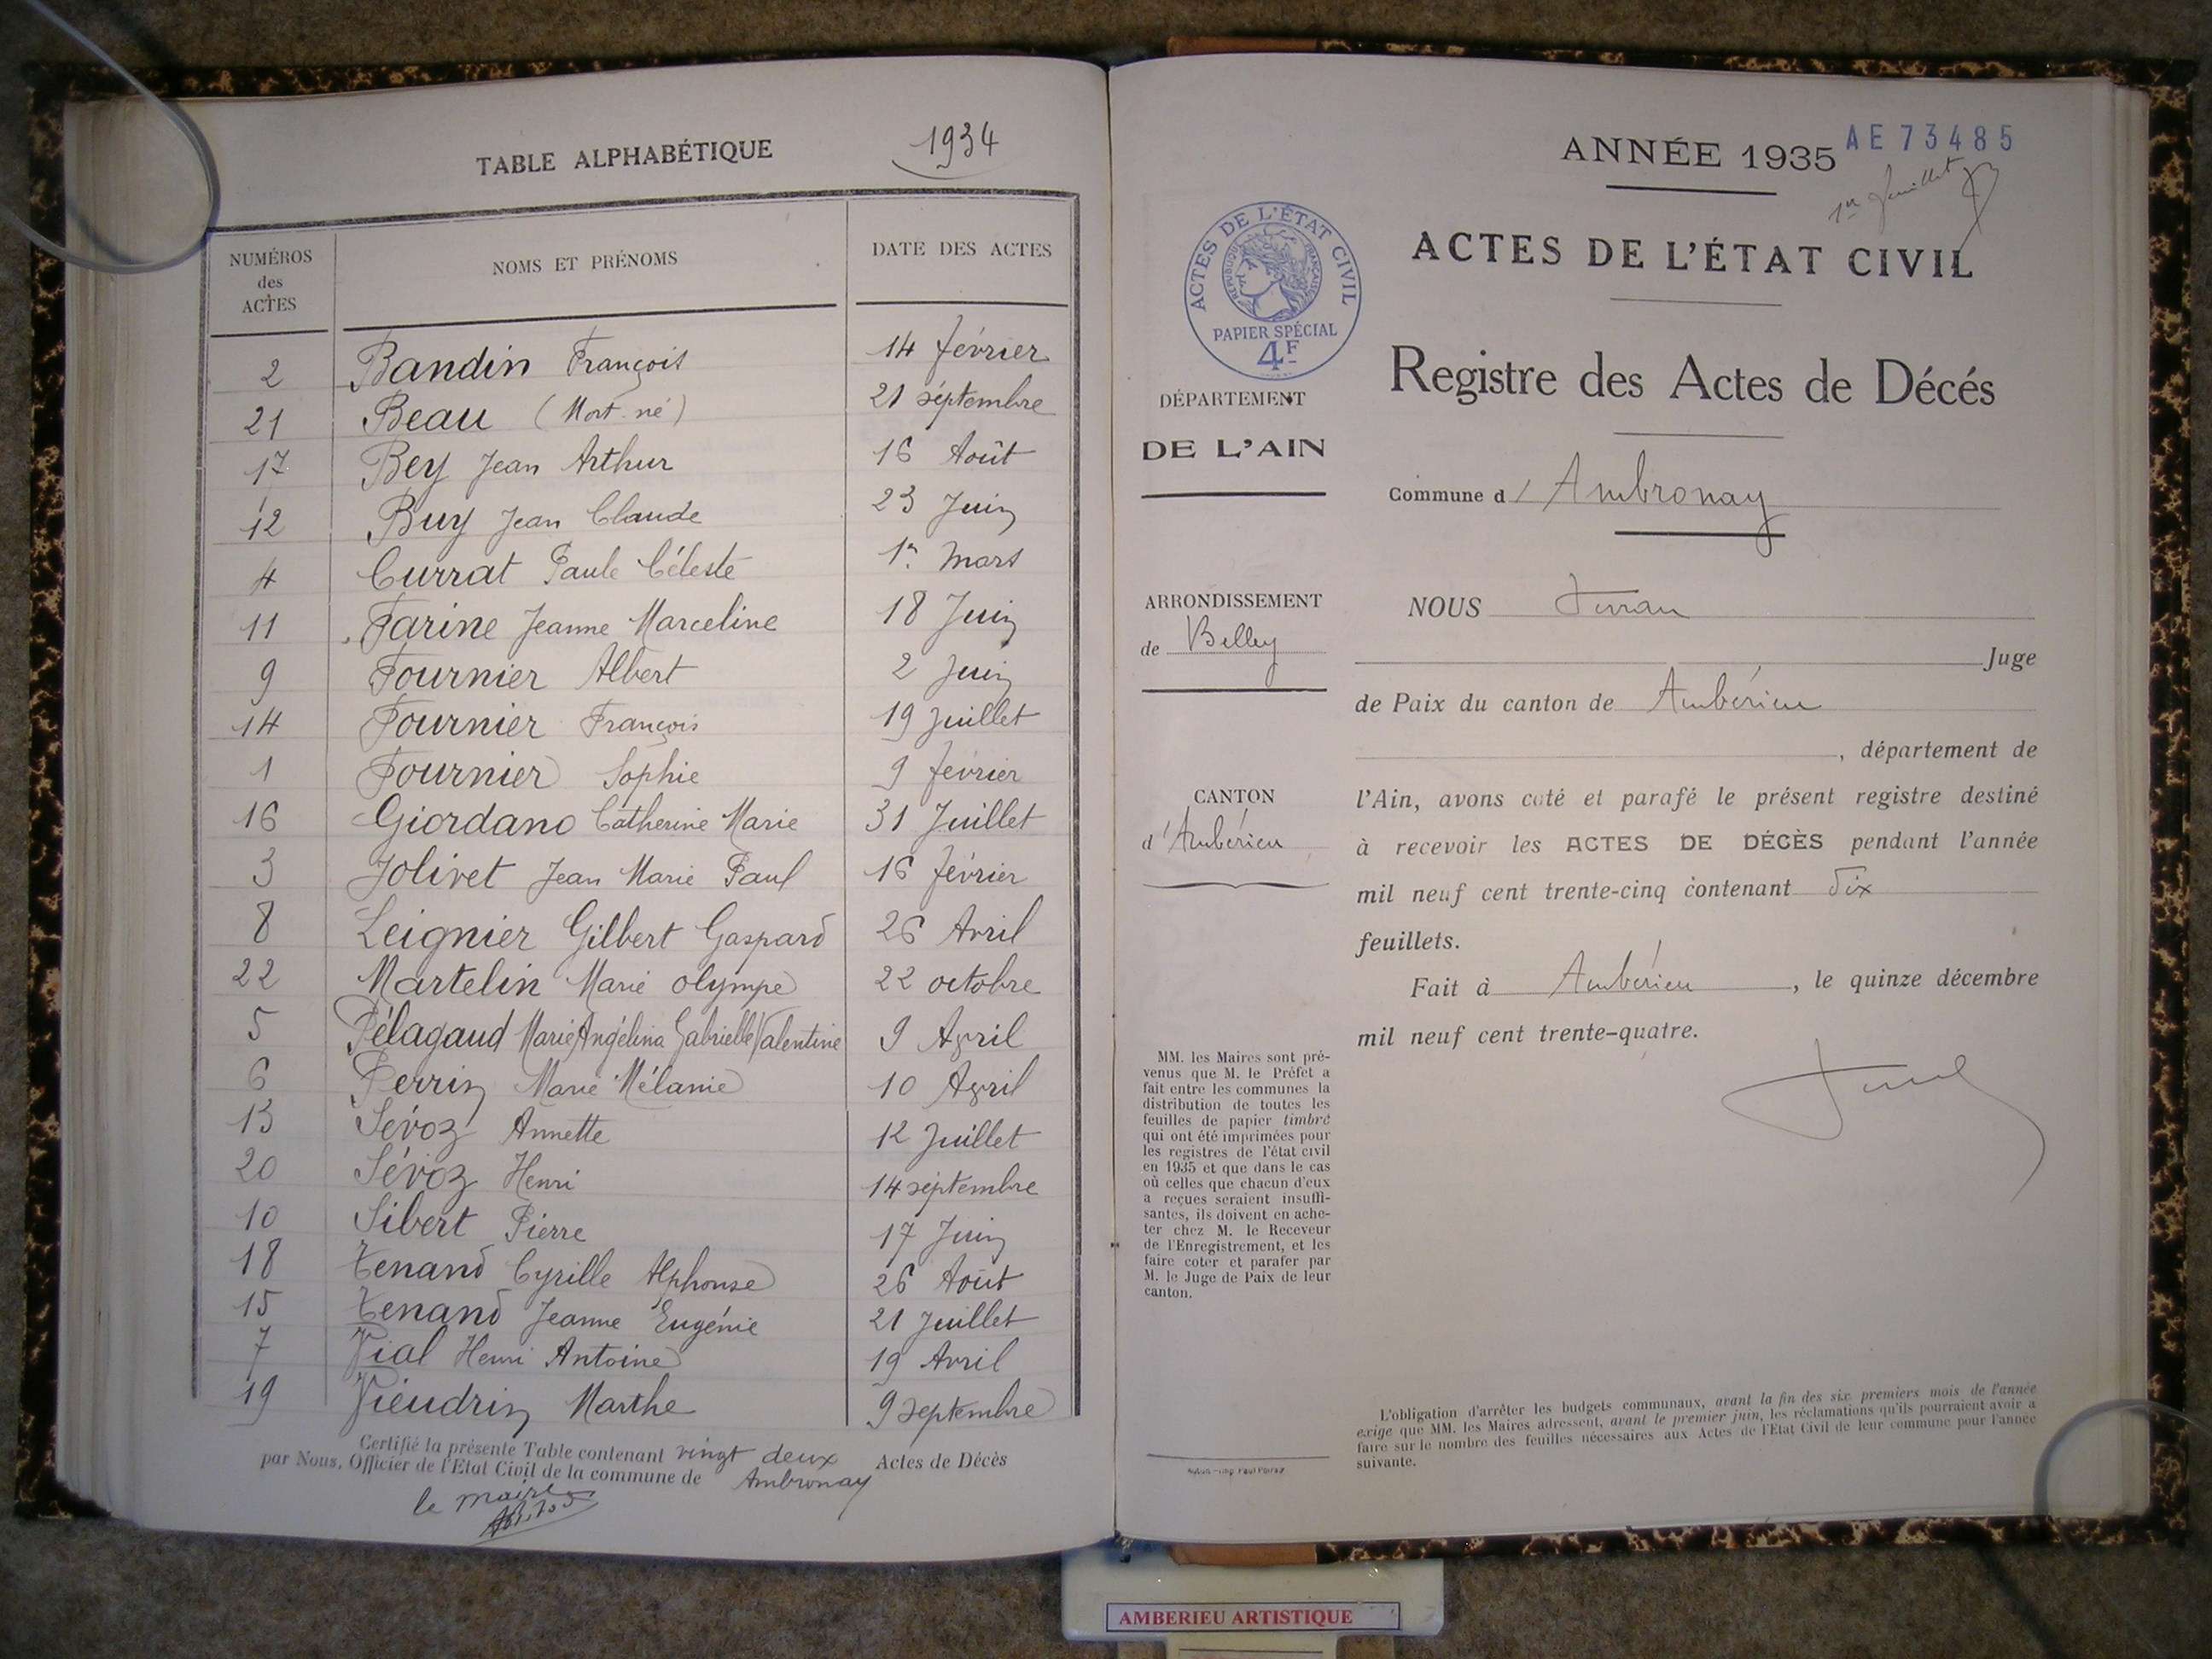 TABLE ALPHABÉTIQUE 1934
NUMÉROS des ACTES NOMS ET PRÉNOMS DATE DES ACTES
2 Bandin François 14 février
21 Beau (Mort-né) 21 septembre
17 Bey Jean Arthur 16 Août
12 Buy Jean Claude 23 Juin
4 Currat Paule Céleste 1er Mars
11 Farine Jeanne Marceline 18 Juin
9 Fournier Albert 2 Juin
14 Fournier François 19 Juillet
1 Fournier Sophie 9 février
16 Giordano Catherine Marie 31 Juillet
3 Jolivet Jean Marie Paul 16 février
8 Leignier Gilbert Gaspard 26 Avril
22 Martelin Marie Olympe 22 octobre
5 Pélagaud Marie Angélina Gabrielle Valentine 9 Avril
6 Perrin Marie Mélanie 10 Avril
13 Sévoz Annette 12 Juillet
20 Sévoz Henri 14 septembre
10 Sibert Pierre 17 Juin
18 Tenand Cyrille Alphonse 26 Août
15 Tenand Jeanne Eugénie 21 Juillet
7 Vial Henri Antoine 19 Avril
19 Vieudrin Marthe 9 septembre
Certifié la présente Table contenant vingt deux Actes de Décès
par Nous, Officier de l'Etat Civil de la commune de Ambronay
le maire
ANNÉE 1935
AE 73485
1er feuillet
ACTES DE L'ÉTAT CIVIL
ACTES DE L'ÉTAT CIVIL
RÉPUBLIQUE FRANÇAISE
PAPIER SPÉCIAL
4F
Registre des Actes de Décés
DÉPARTEMENT
DE L'AIN
Commune d'Ambronay
ARRONDISSEMENT
de Belley
CANTON
d'Ambérieu
NOUS
Juge
de Paix du canton de Ambérieu
, département de
l'Ain, avons coté et parafé le présent registre destiné
à recevoir les ACTES DE DÉCÈS pendant l'année
mil neuf cent trente-cinq contenant
feuillets.
Fait à Ambérieu, le quinze décembre
mil neuf cent trente-quatre.
MM. les Maires sont pré-
venus que M. le Préfet a
fait entre les communes la
distribution de toutes les
feuilles de papier timbré
qui ont été imprimées pour
les registres de l'état civil
en 1935 et que dans le cas
où celles que chacun d'eux
a reçues seraient insuffi-
santes, ils doivent en ache-
ter chez M. le Receveur
de l'Enregistrement, et les
faire coter et parafer par
M. le Juge de Paix de leur
canton.
L'obligation d'arrêter les budgets communaux, avant la fin des six premiers mois de l'année
exige que MM. les Maires adressent, avant le premier juin, les réclamations qu'ils pourraient avoir a
faire sur le nombre des feuilles nécessaires aux Actes de l'Etat Civil de leur commune pour l'année
suivante.
AMBERIEU ARTISTIQUE